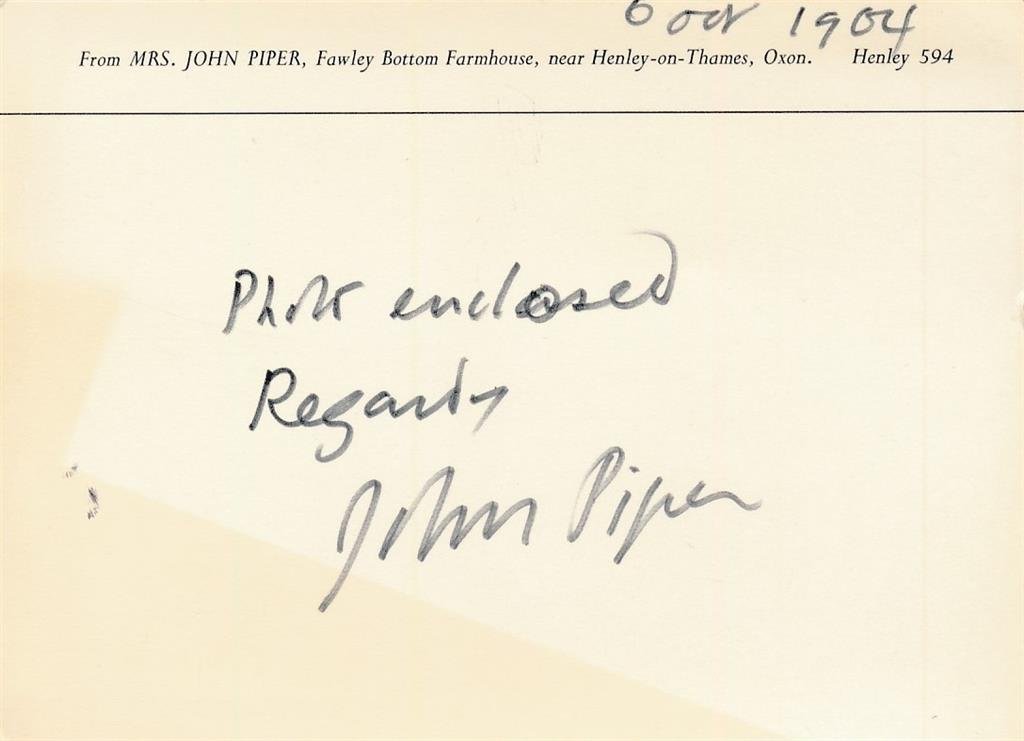 6 Oct 1964
From MRS. JOHN PIPER, Fawley Bottom Farmhouse, near Henley-on-Thames, Oxon. Henley 594
Photo enclosed
Regards
John Piper